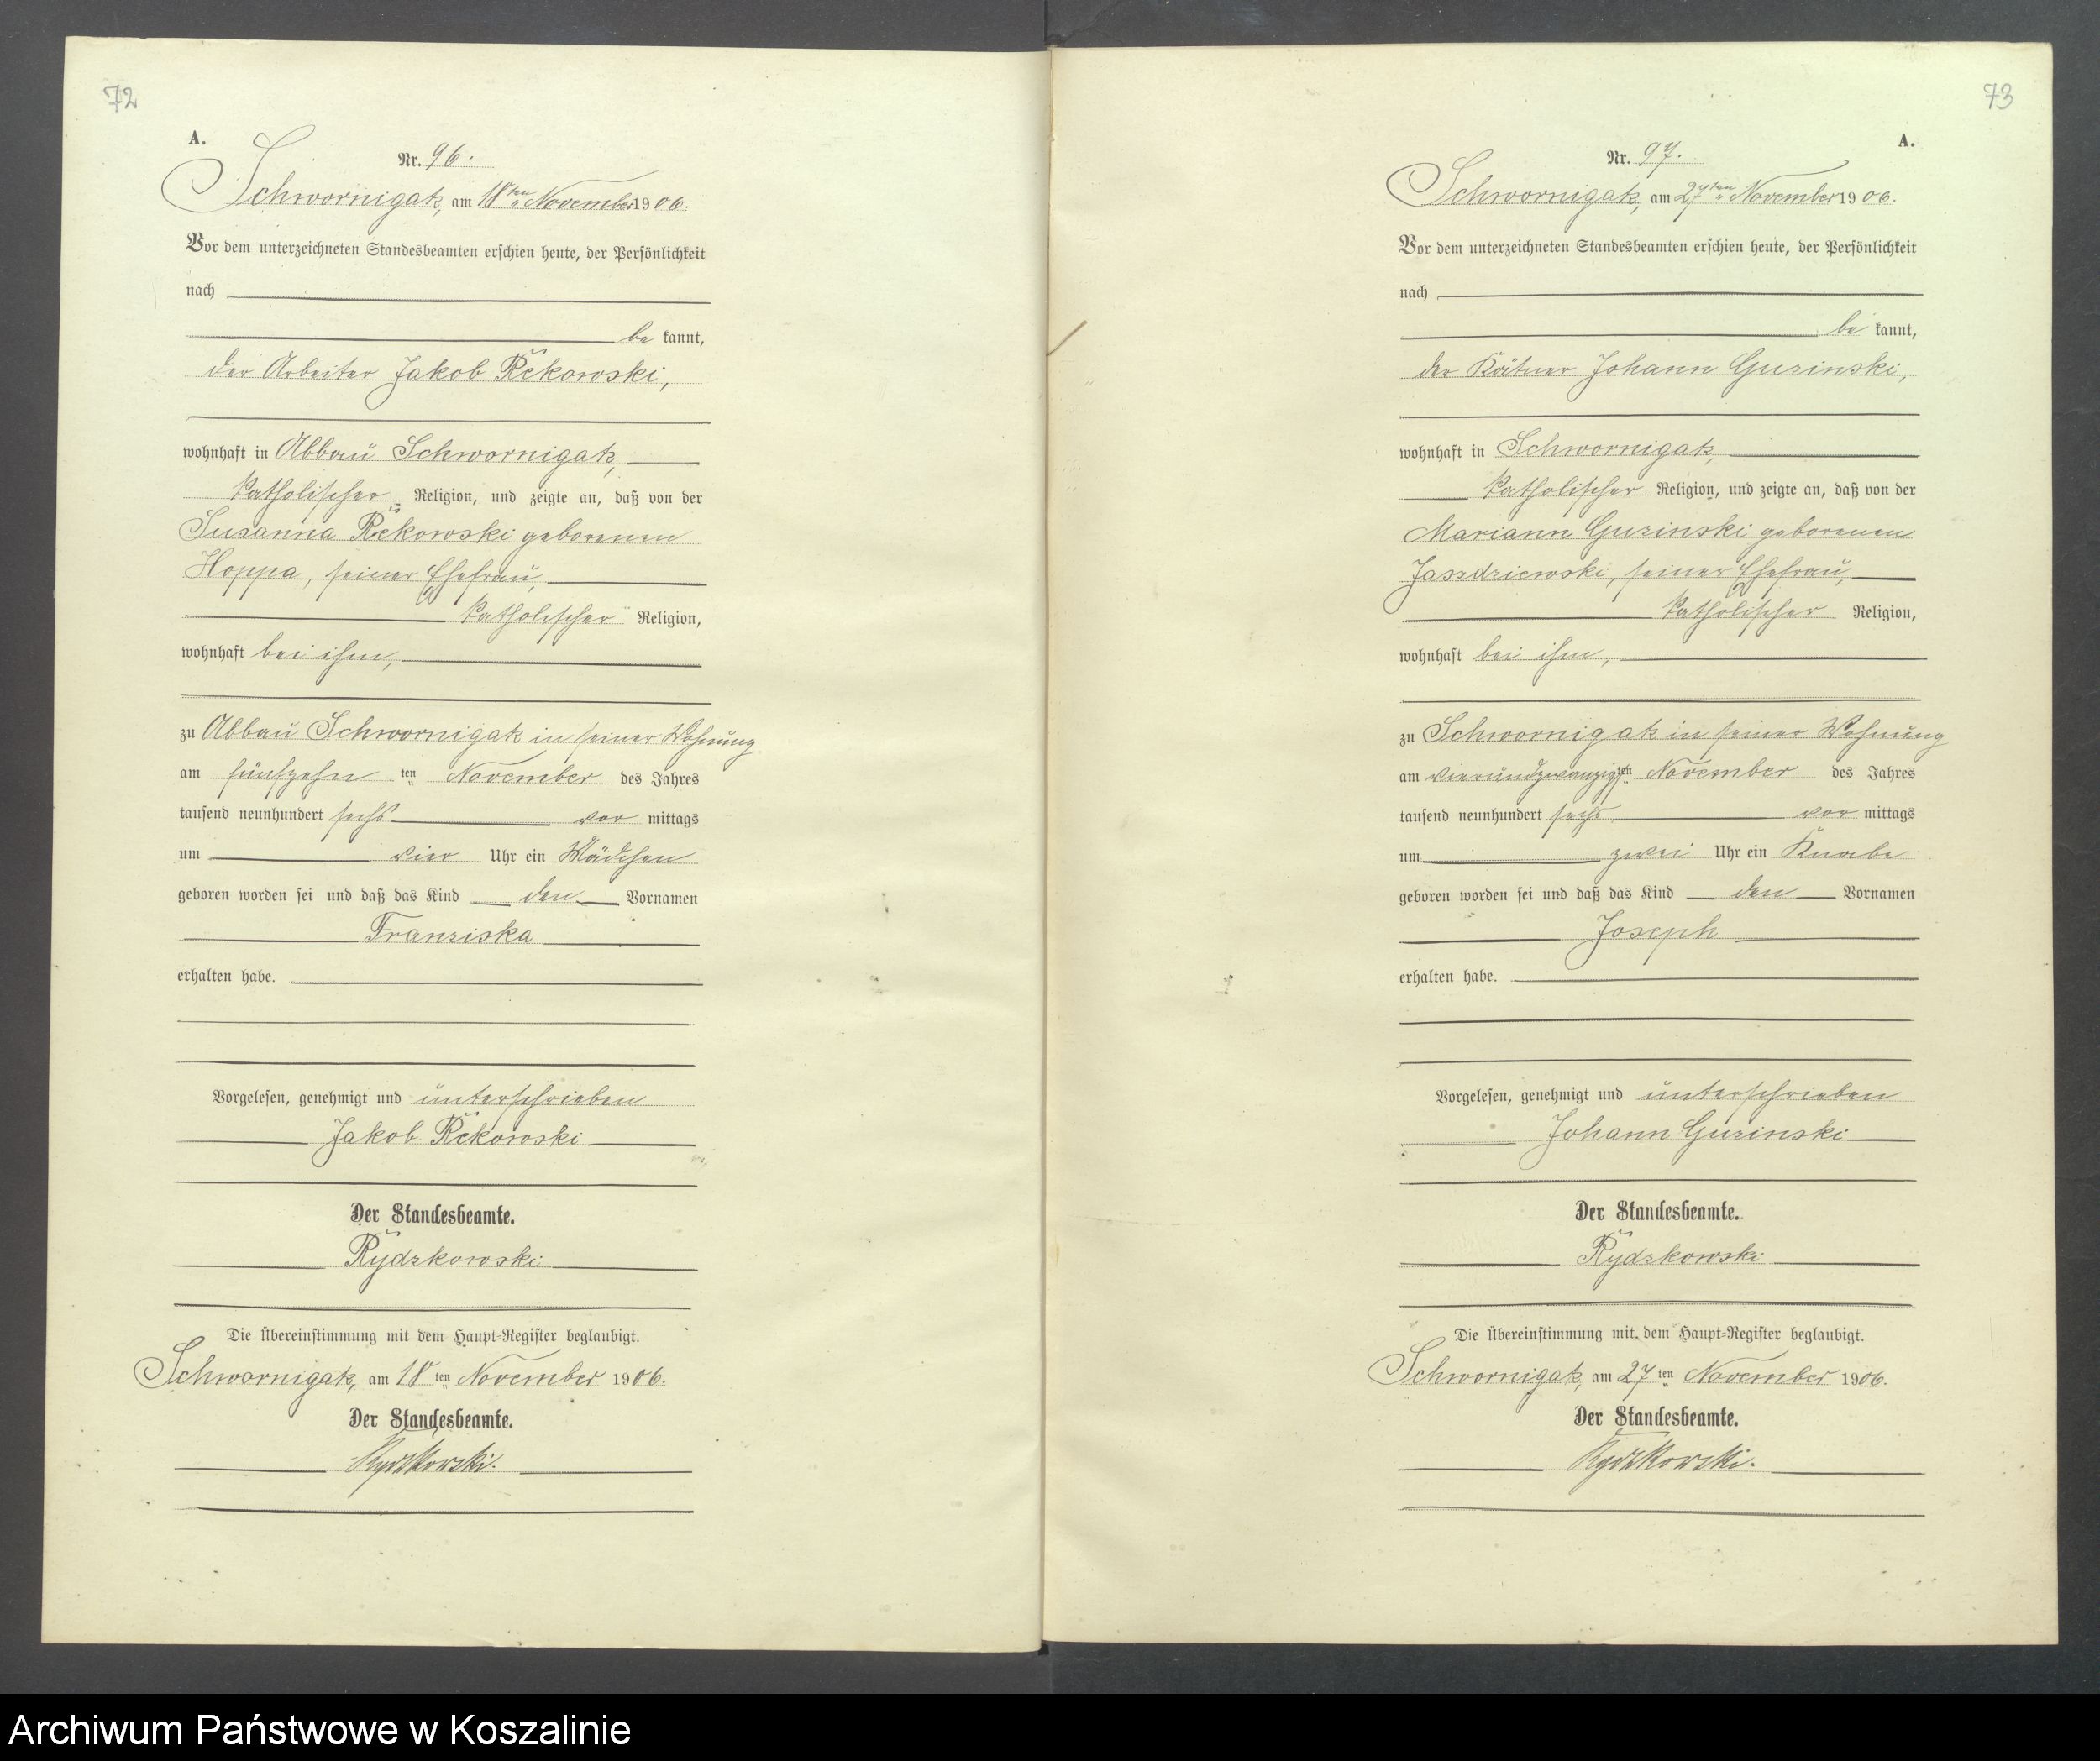 72
A.
Nr. 96.
Schwornigatz, am 18ten November 1906.
Vor dem unterzeichneten Standesbeamten erschien heute, der Persönlichkeit
nach
be kannt,
der Arbeiter Jakob Rekowski,
wohnhaft in Abbau Schwornigatz,
katholischer Religion, und zeigte an, daß von der
Susanna Rekowski geborenen
Hoppa, seiner Ehefrau,
katholischer Religion,
wohnhaft bei ihm,
zu Abbau Schwornigatz in seiner Wohnung
am fünfzehn ten November des Jahres
tausend neunhundert sechs vor mittags
um vier Uhr ein Mädchen
geboren worden sei und daß das Kind den Vornamen
Franziska
erhalten habe.
Vorgelesen, genehmigt und unterschrieben
Jakob Rekowski
Der Standesbeamte.
Rydzkowski
Die Übereinstimmung mit dem Haupt-Register beglaubigt.
Schwornigatz, am 18 ten November 1906.
Der Standesbeamte.
Rydzkowski.
73
A.
Nr. 97.
Schwornigatz, am 27ten November 1906.
Vor dem unterzeichneten Standesbeamten erschien heute, der Persönlichkeit
nach
be kannt,
der Kätner Johann Guzinski,
wohnhaft in Schwornigatz,
katholischer Religion, und zeigte an, daß von der
Mariann Guzinski geborenen
Jaszdziewski, seiner Ehefrau,
katholischer Religion,
wohnhaft bei ihm,
zu Schwornigatz in seiner Wohnung
am vierundzwanzigsten November des Jahres
tausend neunhundert sechs vor mittags
um zwei Uhr ein Knabe
geboren worden sei und daß das Kind den Vornamen
Joseph
erhalten habe.
Vorgelesen, genehmigt und unterschrieben
Johann Guzinski
Der Standesbeamte.
Rydzkowski
Die Übereinstimmung mit dem Haupt-Register beglaubigt.
Schwornigatz, am 27 ten November 1906.
Der Standesbeamte.
Rydzkowski.
Archiwum Państwowe w Koszalinie